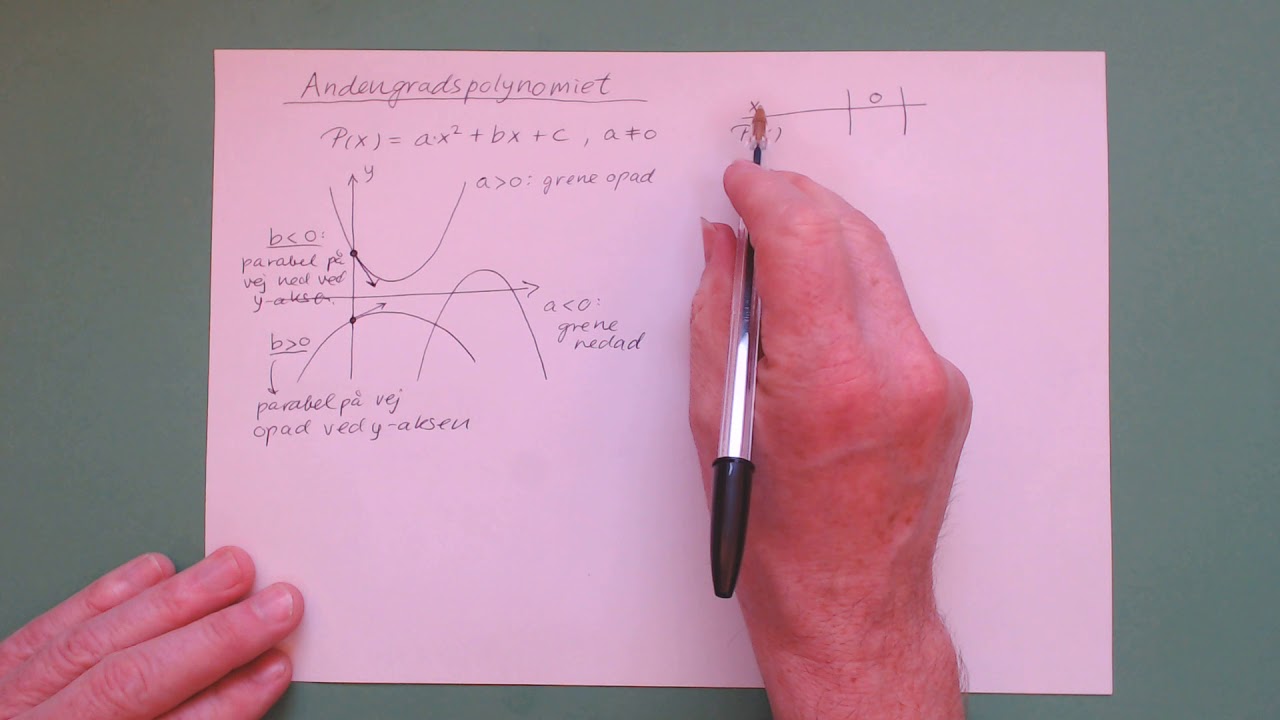 Andengradspolynomiet
P(x) = a·x² + bx + c , a ≠ 0
y
a > 0 : grene opad
b < 0 :
parabel på
vej ned ved
y-aksen.
a < 0 :
grene
nedad
b > 0
parabel på vej
opad ved y-aksen
x 0